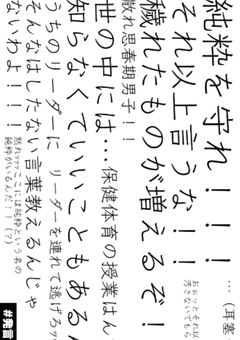 …（耳塞
純粋を守れ！！！
おおっとそれ以
汚さないでもら
それ以上言うな！！
穢れたものが増えるぞ！
散れ思春期男子！！
世の中には…保健体育の授業はん
知らなくていいこともある
うちのリーダーに リーダーを連れて逃げろｯｯ
そんなはしたない言葉教えるんじゃ
ないわよ！！！
黙れｯｯｯここには純粋という名の
純粋がいるんだ！！（？）
#発言